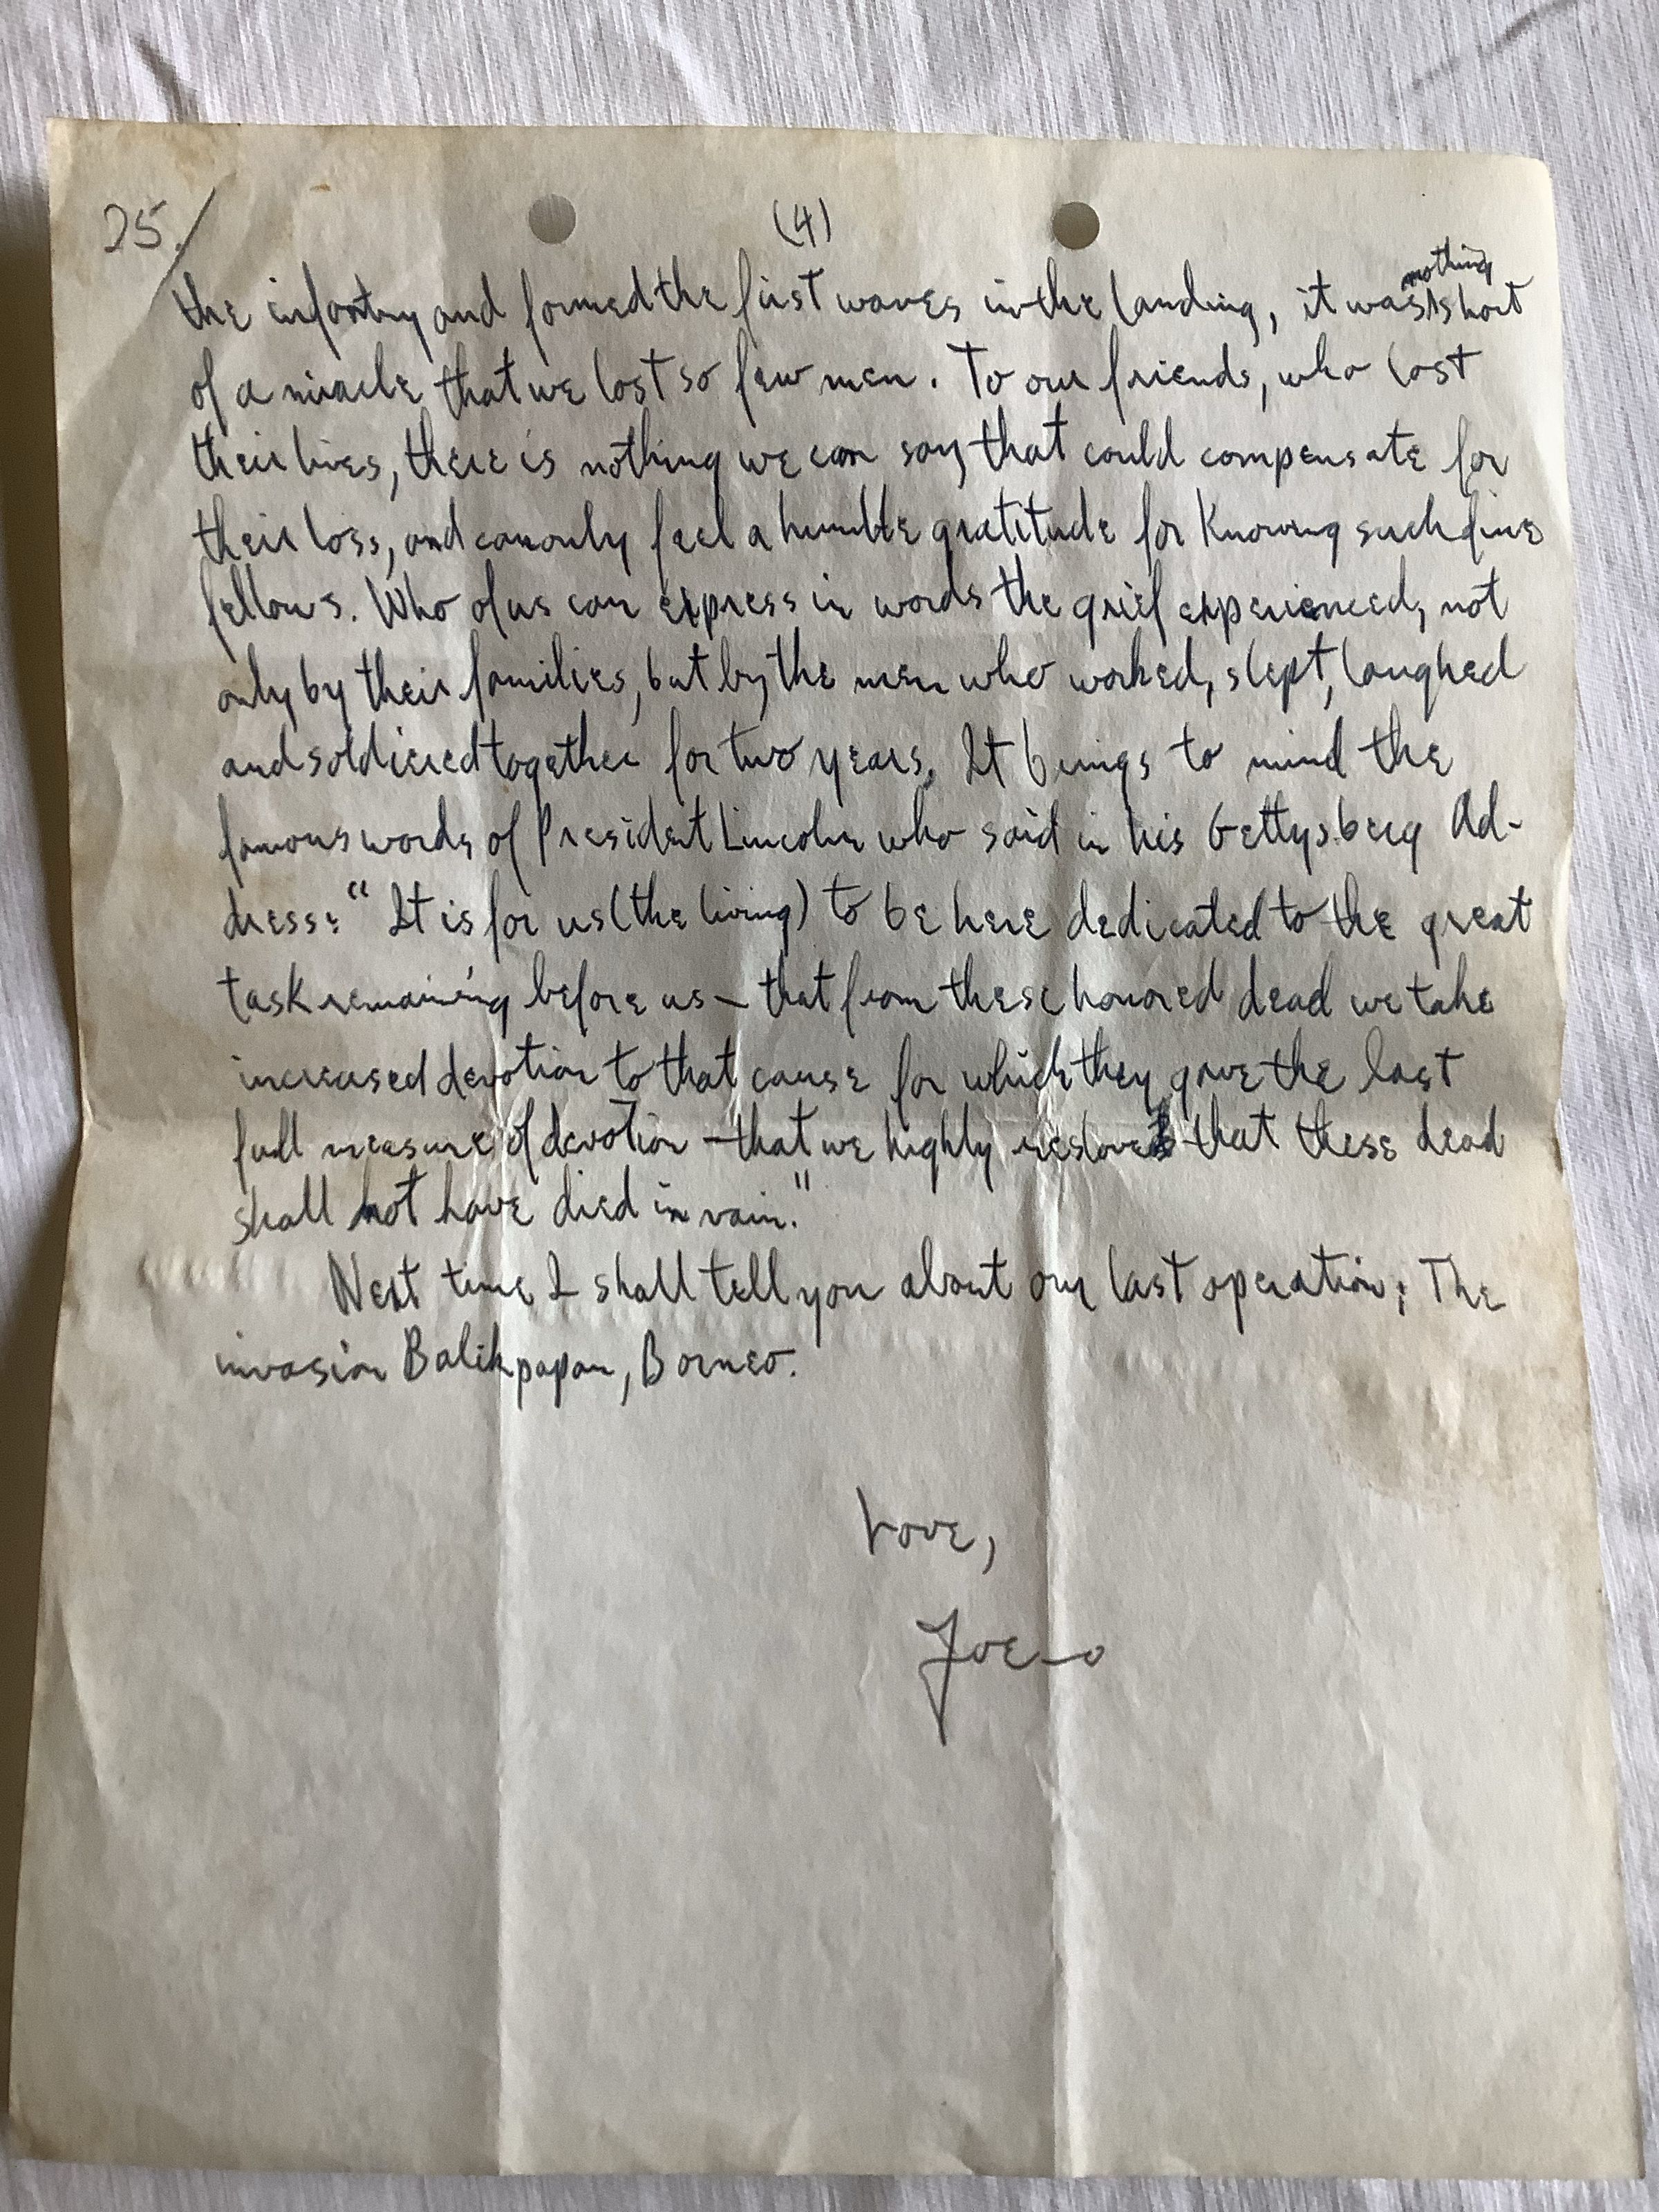 25./
(4)
the infantry and formed the first waves in the landing, it was nothing short
of a miracle that we lost so few men. To our friends, who lost
their lives, there is nothing we can say that could compensate for
their loss, and can only feel a humble gratitude for knowing such fine
fellows. Who of us can express in words the grief experienced, not
only by their families, but by the men who worked, slept, laughed
and soldiered together for two years. It brings to mind the
famous words of President Lincoln who said in his Gettysberg Ad-
dress: "It is for us (the living) to be here dedicated to the great
task remaining before us — that from these honored dead we take
increased devotion to that cause for which they gave the last
full measure of devotion — that we highly reslove that these dead
shall not have died in vain."
Next time I shall tell you about our last operation; The
invasion Balikpapan, Borneo.
Love,
Joe